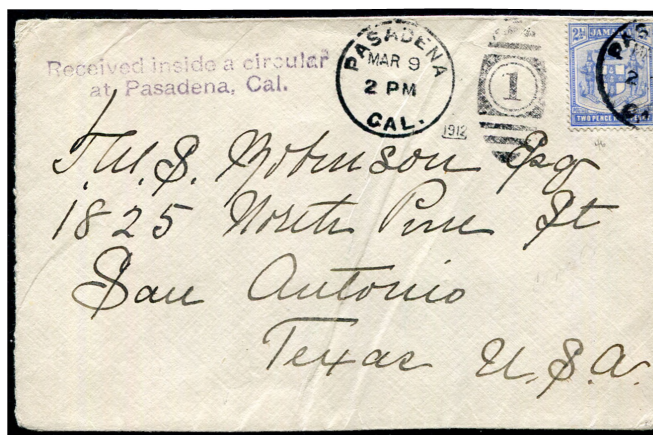 Received inside a circular
at Pasadena, Cal.
PASADENA
MAR 9
2 PM
CAL.
1912
1
2½ JAMAICA
TWO PENCE
PAS
2
Robinson Esq
1825 North Pine St
San Antonio
Texas U.S.A.